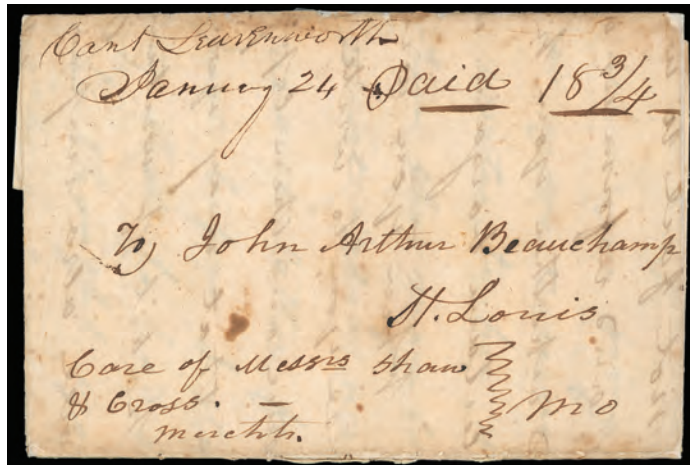 Cant Leavenworth
January 24 Paid 18 3/4
To John Arthur Beauchamp
St. Louis
Care of Messrs Shaw
& Cross. —
Merchts.
Mo